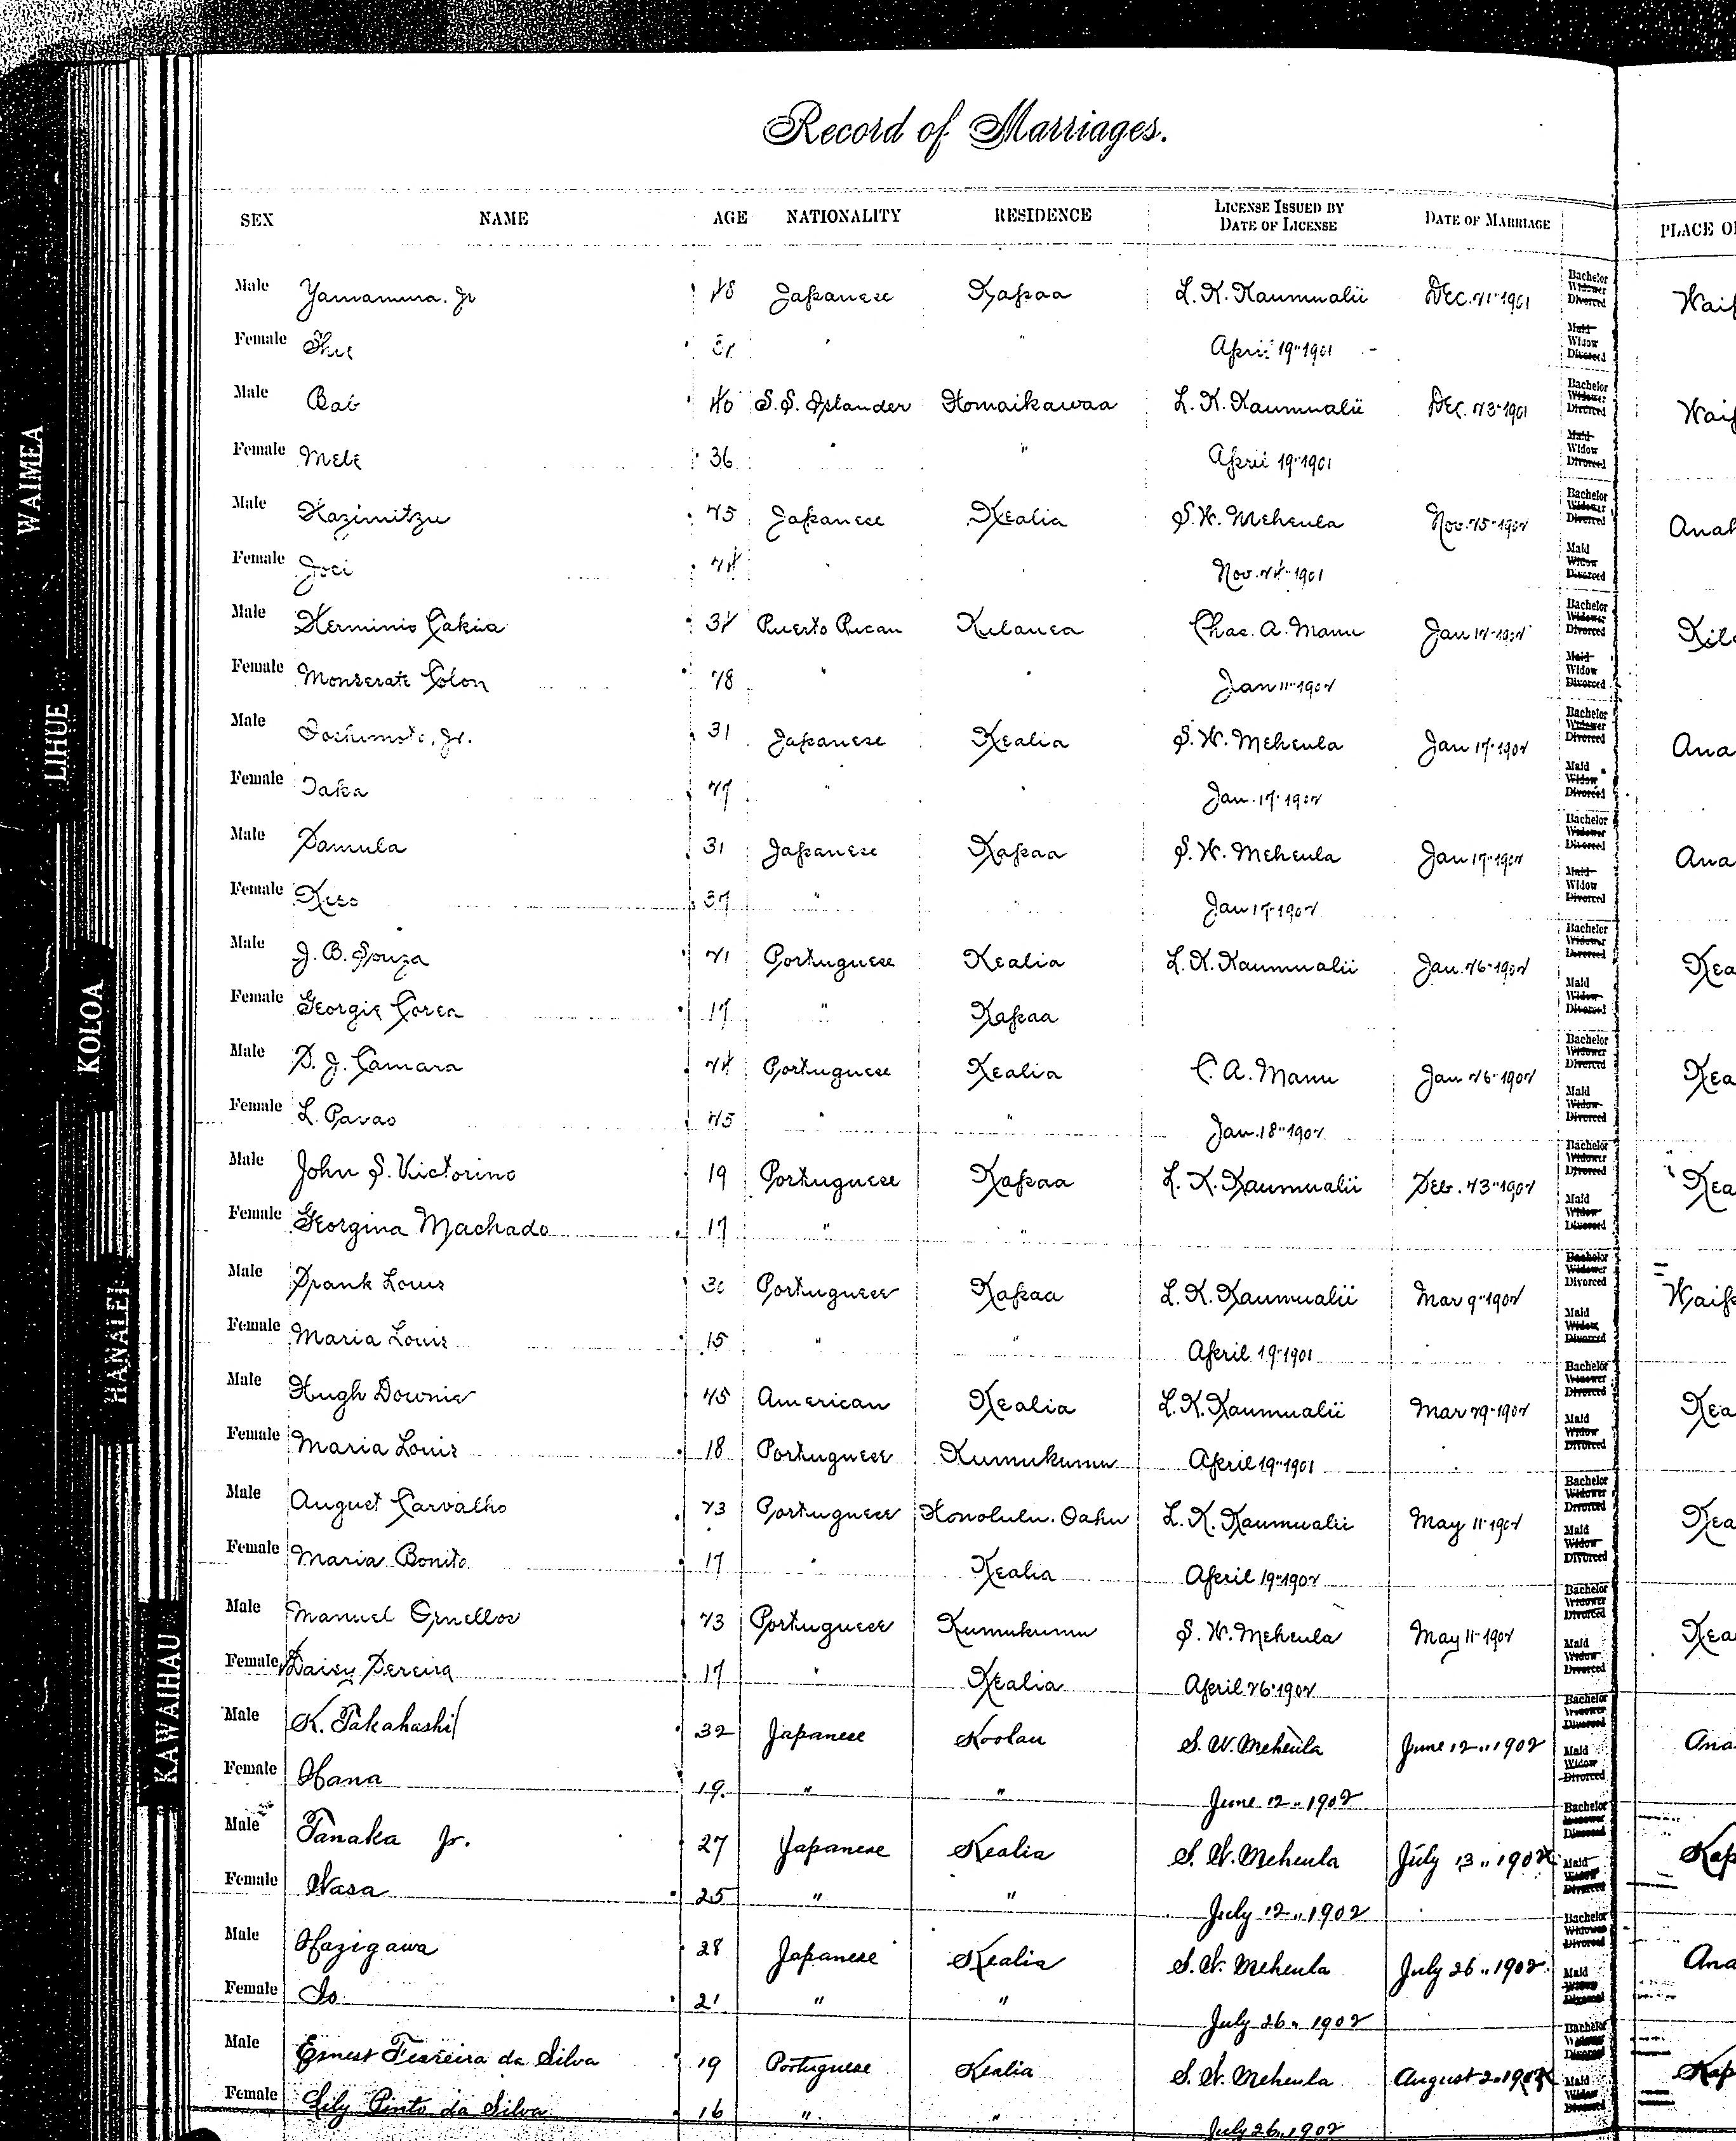 Record of Marriages.
SEX NAME AGE NATIONALITY RESIDENCE LICENSE ISSUED BY DATE OF LICENSE DATE OF MARRIAGE PLACE OF
Male Yamamura. Jr 48 Japanese Kapaa L. K. Kaumualii Dec. 21" 1901 Bachelor Widower Divorced
Female 31 " " April 19" 1901 Maid Widow Divorced
Male Bab 40 S. S. Islander Homaikawaa L. K. Kaumualii Dec. 23" 1901 Bachelor Widower Divorced
Female Mele 36 " " April 19" 1901 Maid Widow Divorced
Male Kazimitzu 25 Japanese Kealia S. W. Meheula Nov. 25" 1902 Bachelor Widower Divorced
Female Joci 24 " " Nov. 24" 1901 Maid Widow Divorced
Male Herminio Cakia 34 Puerto Rican Kilauea Chas. A. Manu Jan 12" 1902 Bachelor Widower Divorced
Female Monserate Colon 28 " " Jan 11" 1902 Maid Widow Divorced
Male Yoshimoto, Jr. 31 Japanese Kealia S. W. Meheula Jan 17" 1902 Bachelor Widower Divorced
Female Taka 22 " " Jan. 17" 1902 Maid Widow Divorced
Male Famula 31 Japanese Kapaa S. W. Meheula Jan 17" 1902 Bachelor Widower Divorced
Female Kiso 32 " " Jan 17" 1902 Maid Widow Divorced
Male J. B. Souza 21 Portuguese Kealia L. K. Kaumualii Jan. 26" 1902 Bachelor Widower Divorced
Female Georgie Corea 17 " Kapaa Maid Widow Divorced
Male F. J. Camara 24 Portuguese Kealia C. A. Manu Jan 26" 1902 Bachelor Widower Divorced
Female L. Pavao 25 " " Jan. 18" 1902 Maid Widow Divorced
Male John S. Victorino 19 Portuguese Kapaa L. K. Kaumualii Feb. 23" 1902 Bachelor Widower Divorced
Female Georgina Machado 17 " " Maid Widow Divorced
Male Frank Louis 30 Portuguese Kapaa L. K. Kaumualii Mar 9" 1902 Bachelor Widower Divorced
Female Maria Louis 15 " " April 19" 1901 Maid Widow Divorced
Male Hugh Downie 45 American Kealia L. K. Kaumualii Mar 29" 1902 Bachelor Widower Divorced
Female Maria Louis 18 Portuguese Kumukumu April 19" 1901 Maid Widow Divorced
Male August Carvalho 23 Portuguese Honolulu. Oahu L. K. Kaumualii May 11" 1902 Bachelor Widower Divorced
Female Maria Bonito 17 " Kealia April 19" 1902 Maid Widow Divorced
Male Manuel Ornellos 23 Portuguese Kumukumu S. W. Meheula May 11" 1902 Bachelor Widower Divorced
Female Daisy Pereira 17 " Kealia April 26" 1902 Maid Widow Divorced
Male K. Takahashi 32 Japanese Koolau S. W. Meheula June 12" 1902 Bachelor Widower Divorced
Female Hana 19. " " June 12" 1902 Maid Widow Divorced
Male Tanaka Jr. 27 Japanese Kealia S. W. Meheula July 13" 1902 Bachelor Widower Divorced
Female Wasa 25 " " July 12" 1902 Maid Widow Divorced
Male Hazigawa 28 Japanese Kealia S. W. Meheula July 26" 1902 Bachelor Widower Divorced
Female Io 21 " " July 26" 1902 Maid Widow Divorced
Male Ernest Ferreira da Silva 19 Portuguese Kealia S. W. Meheula August 2" 1902 Bachelor Widower Divorced
Female Lily Pinto da Silva 16 " " July 26" 1902 Maid Widow Divorced
WAIMEA
LIHUE
KOLOA
HANALEI
KAWAIHAU